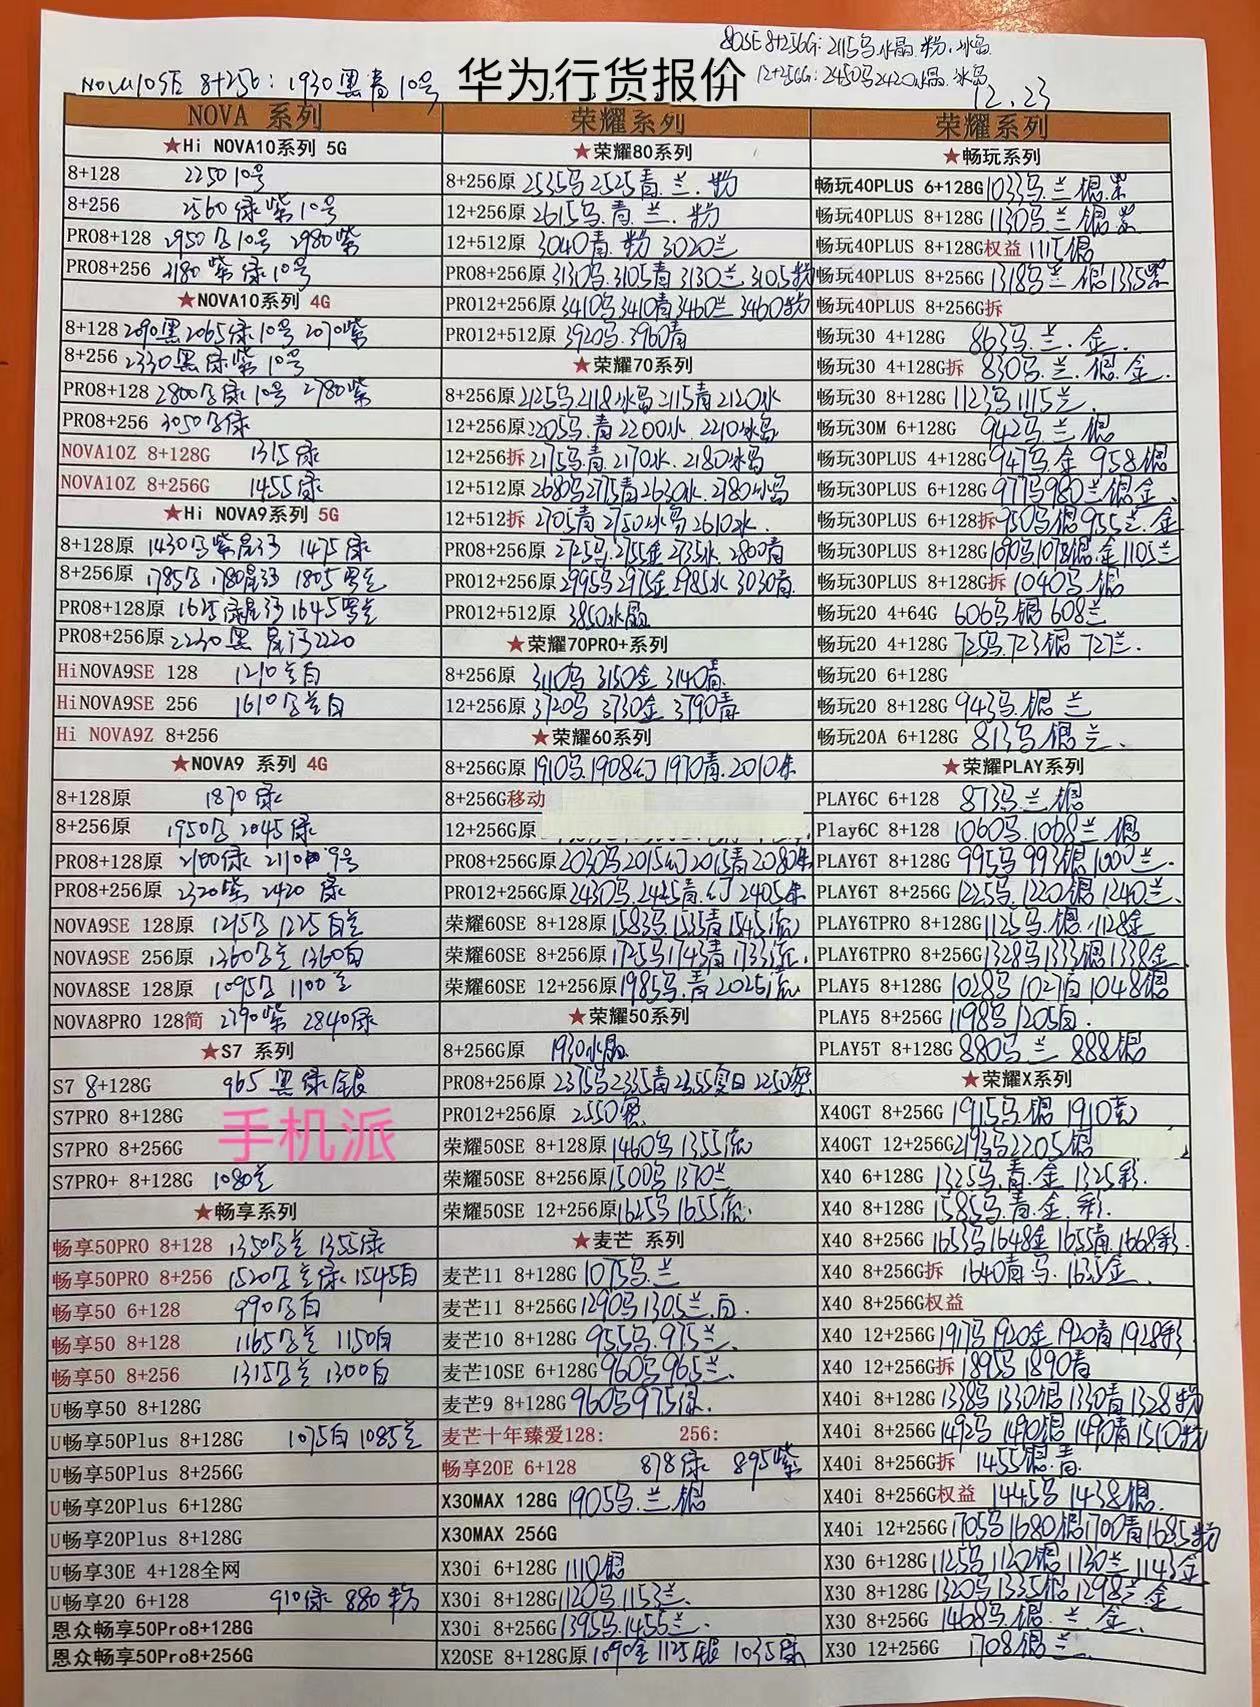 80SE 8+256G: 2115马水晶.粉.冰岛
12+256G: 2450马2420水晶.冰岛
NOVA10SE 8+256: 1930黑青10号
华为行货报价
12.23
NOVA 系列
★Hi NOVA10系列 5G
8+128 2250 10号
8+256 2560 绿紫10号
PRO8+128 2950 10号 2980紫
PRO8+256 3180 紫绿10号
★NOVA10系列 4G
8+128 2090黑2065绿10号 2070紫
8+256 2330黑绿紫10号
PRO8+128 2800 绿10号 2780紫
PRO8+256 3050 绿
NOVA10Z 8+128G 1315绿
NOVA10Z 8+256G 1455绿
★Hi NOVA9系列 5G
8+128原 1430 紫 1475绿
8+256原 1785 1780 1805
PRO8+128原 1625绿 1645
PRO8+256原 2230黑 2220
HiNOVA9SE 128 1210兰白
HiNOVA9SE 256 1610 兰白
Hi NOVA9Z 8+256
★NOVA9 系列 4G
8+128原 1870绿
8+256原 1950 2045绿
PRO8+128原 2100绿 2110 9号
PRO8+256原 2320紫 2420 绿
NOVA9SE 128原 1215 1225白兰
NOVA9SE 256原 1360 兰 1360白
NOVA8SE 128原 1095 1100兰
NOVA8PRO 128简 2790紫 2840绿
★S7 系列
S7 8+128G 965 黑绿银
S7PRO 8+128G
S7PRO 8+256G
手机派
S7PRO+ 8+128G 1080兰
★畅享系列
畅享50PRO 8+128 1350 兰 1355绿
畅享50PRO 8+256 1520 兰绿 1545白
畅享50 6+128 990 白
畅享50 8+128 1165 兰 1150白
畅享50 8+256 1315 兰 1300白
U畅享50 8+128G
U畅享50Plus 8+128G 1075白1085兰
U畅享50Plus 8+256G
U畅享20Plus 6+128G
U畅享20Plus 8+128G
U畅享30E 4+128全网
U畅享20 6+128 910绿 880粉
恩众畅享50Pro8+128G
恩众畅享50Pro8+256G
荣耀系列
★荣耀80系列
8+256原 2535马2525青.兰.粉
12+256原 2615马.青.兰.粉
12+512原 3040青.粉 3020兰
PRO8+256原 3130马.3105青3130兰 3105粉
PRO12+256原 3410马3410青3460兰 3460粉
PRO12+512原 3920马.3960青
★荣耀70系列
8+256原2125马2118冰岛2115青2120水
12+256原2205马.青2200水.2210冰岛
12+256拆2175马青2170水.2180冰岛
12+512原2680马2715青2630水.2780冰岛
12+512拆 2705青2750冰岛2610水.
PRO8+256原 2725马.2755金2735水.2800青
PRO12+256原2995马2975金2985水 3030青.
PRO12+512原 3850水晶
★荣耀70PRO+系列
8+256原 3110马 3150金 3140青.
12+256原 3720马 3730金 3790青
★荣耀60系列
8+256G原 1910马.1908幻 1970青.2010朱
8+256G移动
12+256G原
PRO8+256G原2030马2015幻2015青2080朱
PRO12+256G原2430马.2445青.幻 2405朱
荣耀60SE 8+128原1583马1535青1545流
荣耀60SE 8+256原1725马1743青1733流.
荣耀60SE 12+256原1985马.青2025流
★荣耀50系列
8+256G原 1930水晶
PRO8+256原 2375马2335青2355夏日 2250墨
PRO12+256原 2550墨
荣耀50SE 8+128原1460马1355流
荣耀50SE 8+256原1500马1370兰
荣耀50SE 12+256原1625马1655流.
★麦芒 系列
麦芒11 8+128G 1075马.兰
麦芒11 8+256G1290马1305兰.白.
麦芒10 8+128G 955马.975兰.
麦芒10SE 6+128G960马965兰.
麦芒9 8+128G 960马975绿.
麦芒十年臻爱128: 256:
畅享20E 6+128 878绿 895紫
X30MAX 128G 1905马.兰.银
X30MAX 256G
X30i 6+128G 1110银
X30i 8+128G1120马.1153兰.
X30i 8+256G1395马1455兰.
X20SE 8+128G原1090金1125银 1035绿
荣耀系列
★畅玩系列
畅玩40PLUS 6+128G1033马.兰.银.墨
畅玩40PLUS 8+128G 1130马兰银墨
畅玩40PLUS 8+128G权益 1115银
畅玩40PLUS 8+256G 1318马兰 银1335墨
畅玩40PLUS 8+256G拆
畅玩30 4+128G 863马.兰.金.
畅玩30 4+128G拆 830马.兰.银.金.
畅玩30 8+128G 1123马1115兰.
畅玩30M 6+128G 942马兰 银
畅玩30PLUS 4+128G947马 金 958银
畅玩30PLUS 6+128G 977马980兰银金.
畅玩30PLUS 6+128拆950马银955兰.金
畅玩30PLUS 8+128G1090马1078银.金1105兰
畅玩30PLUS 8+128G拆 1040马 银
畅玩20 4+64G 606马银608兰
畅玩20 4+128G 725马.723银 727兰.
畅玩20 6+128G
畅玩20 8+128G 943马.银 兰
畅玩20A 6+128G 813马银 兰.
★荣耀PLAY系列
PLAY6C 6+128 873马.兰.银
Play6C 8+128 1060马.1068兰 银
PLAY6T 8+128G 995马993银1000兰.
PLAY6T 8+256G 1225马1220银1240兰.
PLAY6TPRO 8+128G1125马.银.1128金
PLAY6TPRO 8+256G1328马1333银1338金
PLAY5 8+128G 1028马1027青1048银
PLAY5 8+256G 1198马1205白.
PLAY5T 8+128G 880马兰 888银
★荣耀X系列
X40GT 8+256G 1915马.银 1910竞
X40GT 12+256G2193马2205银
X40 6+128G 1325马.青.金.1325彩.
X40 8+128G 1585马.青.金.彩.
X40 8+256G 1653马1648金1655青.1668彩.
X40 8+256G拆 1640青.马.1635金.
X40 8+256G权益
X40 12+256G1917马1920金1920青1928彩
X40 12+256G拆 1895马1890青
X40i 8+128G 1338马1330银1330青1328粉
X40i 8+256G1492马1490银1490青1510粉
X40i 8+256G拆 1455银.青.
X40i 8+256G权益 1445马 1438银.
X40i 12+256G1705马1680银1700青1685粉
X30 6+128G 1125马1120银1130兰1143金
X30 8+128G 1320马1335银1298兰金
X30 8+256G 1468马.银.兰.金.
X30 12+256G 1708银兰.